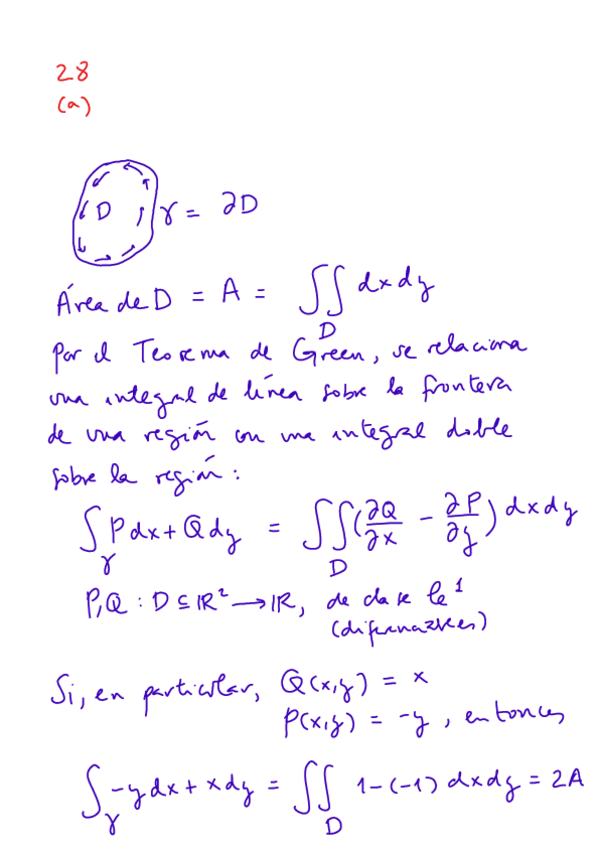 28
(a)
D γ = ∂D
Área de D = A = ∬_D dxdy
Por el Teorema de Green, se relaciona
una integral de línea sobre la frontera
de una región con una integral doble
sobre la región:
∫_γ Pdx + Qdy = ∬_D (∂Q/∂x − ∂P/∂y) dxdy
P,Q : D ⊆ ℝ² → ℝ, de clase 𝒞¹
(diferenciables)
Si, en particular, Q(x,y) = x
P(x,y) = -y, entonces
∫_γ -ydx + xdy = ∬_D 1-(-1) dxdy = 2A